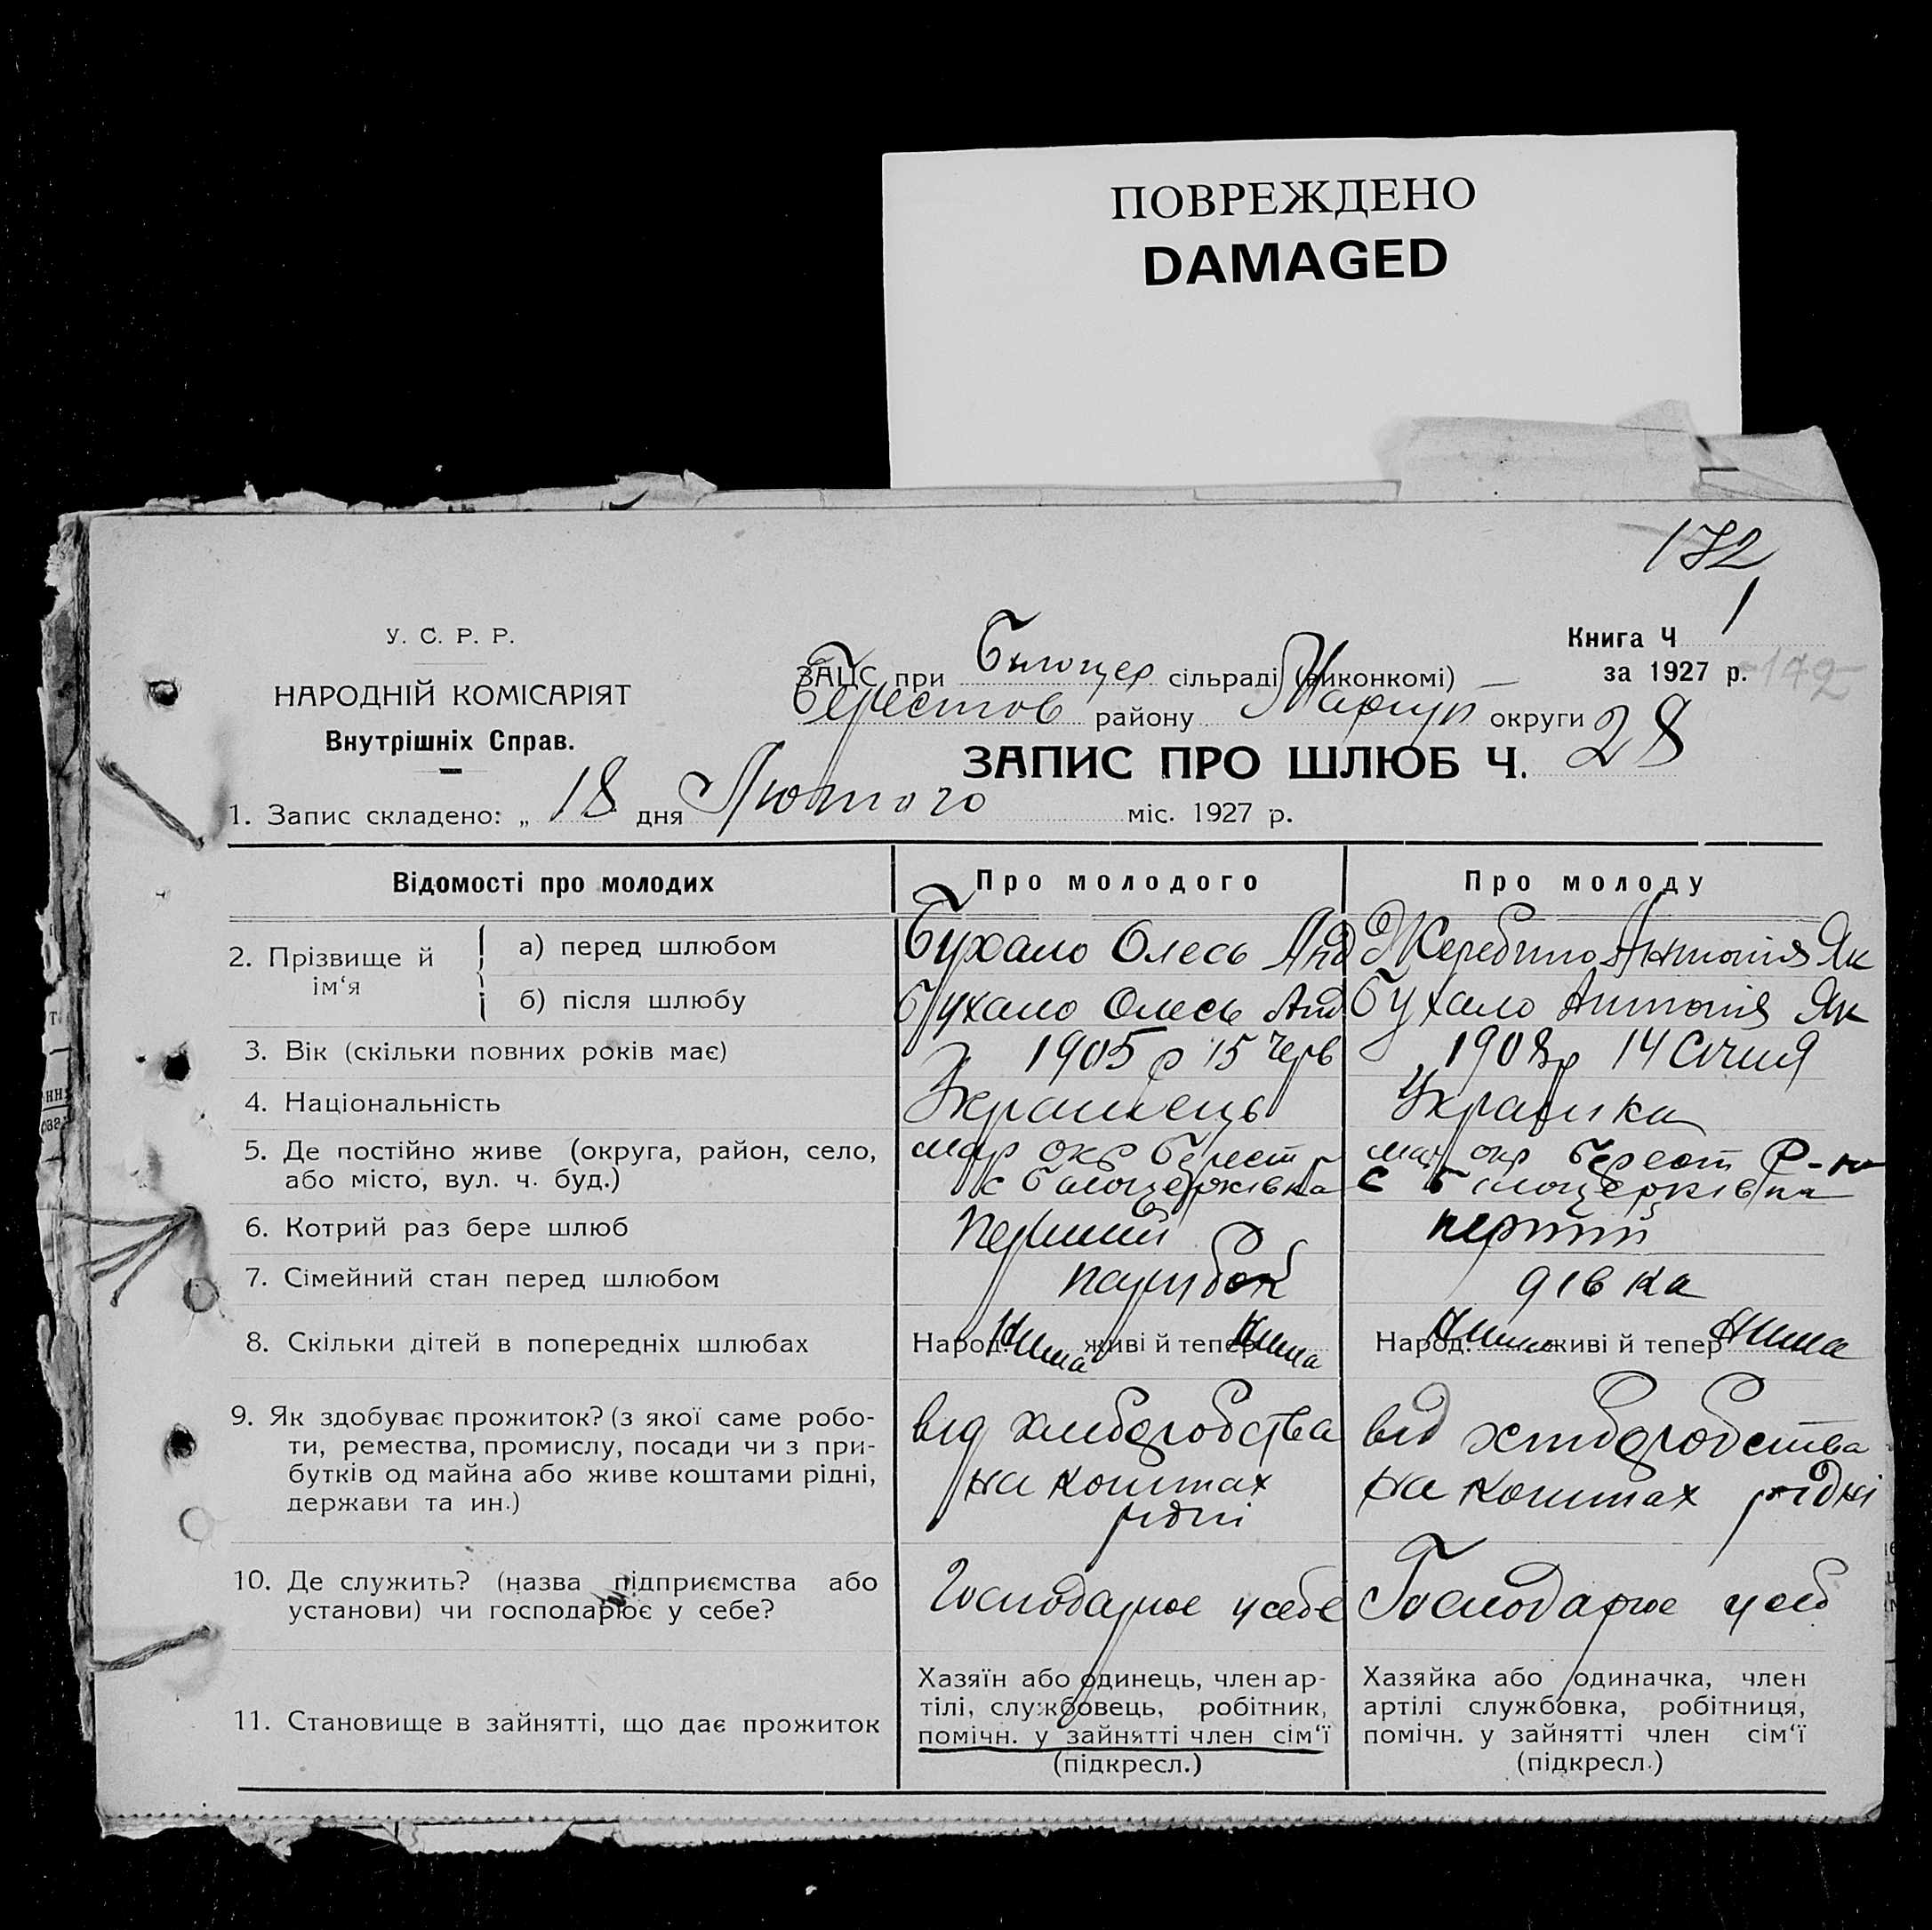 ПОВРЕЖДЕНО
DAMAGED
172
У. С. Р. Р.
НАРОДНІЙ КОМІСАРІЯТ
Внутрішніх Справ.
Книга Ч 1
за 1927 р. 172
ЗАЦС при Билоцер сільраді (виконкомі) —
Берестов району Маріуп округи
ЗАПИС ПРО ШЛЮБ Ч. 28
1. Запис складено: „ 18 дня Лютого міс. 1927 р.
Відомості про молодих Про молодого Про молоду
2. Прізвище й ім‘я
а) перед шлюбом Бухало Олесь Анд Жеребило Антонія Як
б) після шлюбу Бухало Олесь Анд Бухало Антонія Як
3. Вік (скільки повних років має) 1905 р 15 Черв 1908 р 14 Січня
4. Національність Українець Українка
5. Де постійно живе (округа, район, село, мар окр Берест мар окр Берест Р-н
або місто, вул. ч. буд.) с Білоцерківка с Білоцерківка
6. Котрий раз бере шлюб перший перший
7. Сімейний стан перед шлюбом парубок дівка
8. Скільки дітей в попередніх шлюбах Народ. Нима живі й тепер Нима Народ. Нима живі й тепер Нима
9. Як здобуває прожиток? (з якої саме робо-
ти, ремества, промислу, посади чи з при-
бутків од майна або живе коштами рідні,
держави та ин.)
від хлиборобства
на коштах
рідні
від хлиборобства
на коштах рідні
10. Де служить? (назва підприємства або
установи) чи господарює у себе?
Господарює у себе Господарює у себ
11. Становище в зайнятті, що дає прожиток
Хазяїн або одинець, член ар-
тілі, службовець, робітник,
помічн. у зайнятті член сім‘ї
(підкресл.)
Хазяйка або одиначка, член
артілі службовка, робітниця,
помічн. у зайнятті член сім‘ї
(підкресл.)